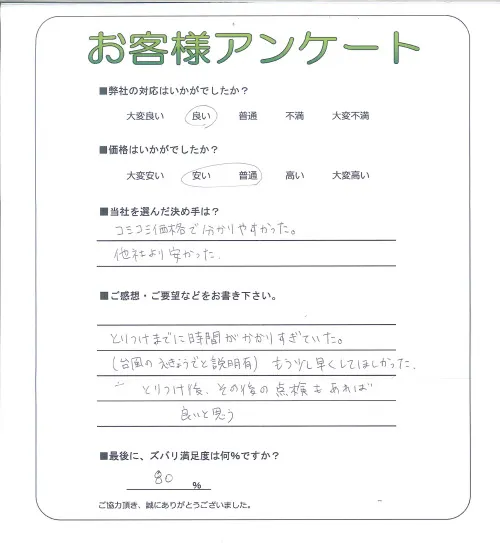 お客様アンケート
■弊社の対応はいかがでしたか?
大変良い 良い 普通 不満 大変不満
■価格はいかがでしたか?
大変安い 安い 普通 高い 大変高い
■当社を選んだ決め手は?
コミコミ価格で分かりやすかった。
他社より安かった.
■ご感想・ご要望などをお書き下さい。
とりつけまでに時間がかかりすぎていた。
(台風のえきょうでと説明有) もう少し早くしてほしかった.
とりつけ後、その後の点検もあれば
良いと思う
■最後に、ズバリ満足度は何%ですか?
80 %
ご協力頂き、誠にありがとうございました。